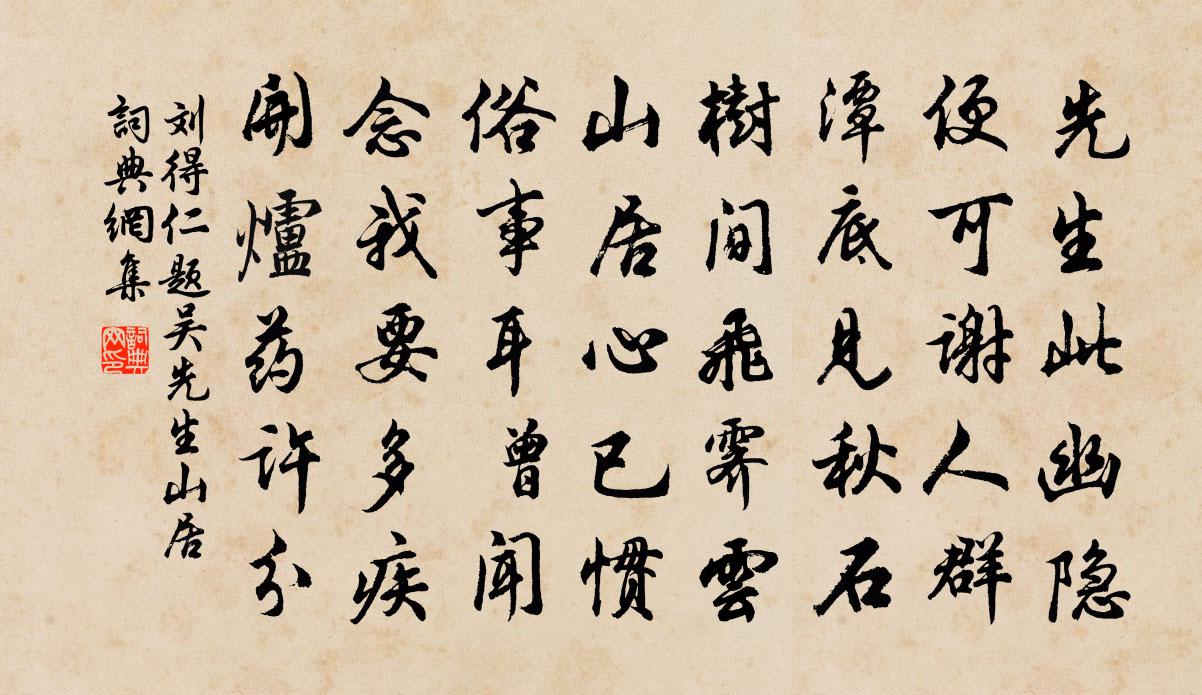 先生此幽隐
便可谢人群
潭底见秋石
樹间飛霽雲
山居心已惯
俗事耳曾闻
念我要多疾
開爐药许分
刘得仁题吴先生山居
詞典網集
詞典
网印